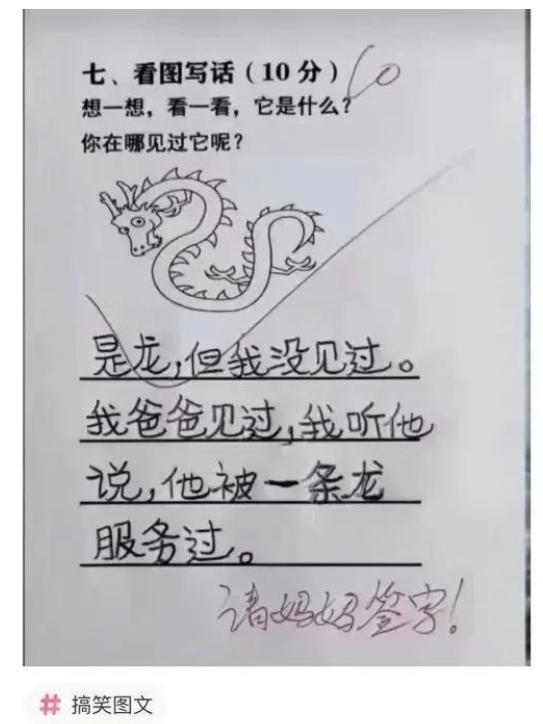 七、看图写话（10 分）
10
想一想，看一看，它是什么？
你在哪见过它呢？
是龙，但我没见过。
我爸爸见过，我听他
说，他被一条龙
服务过。
请妈妈签字！
# 搞笑图文